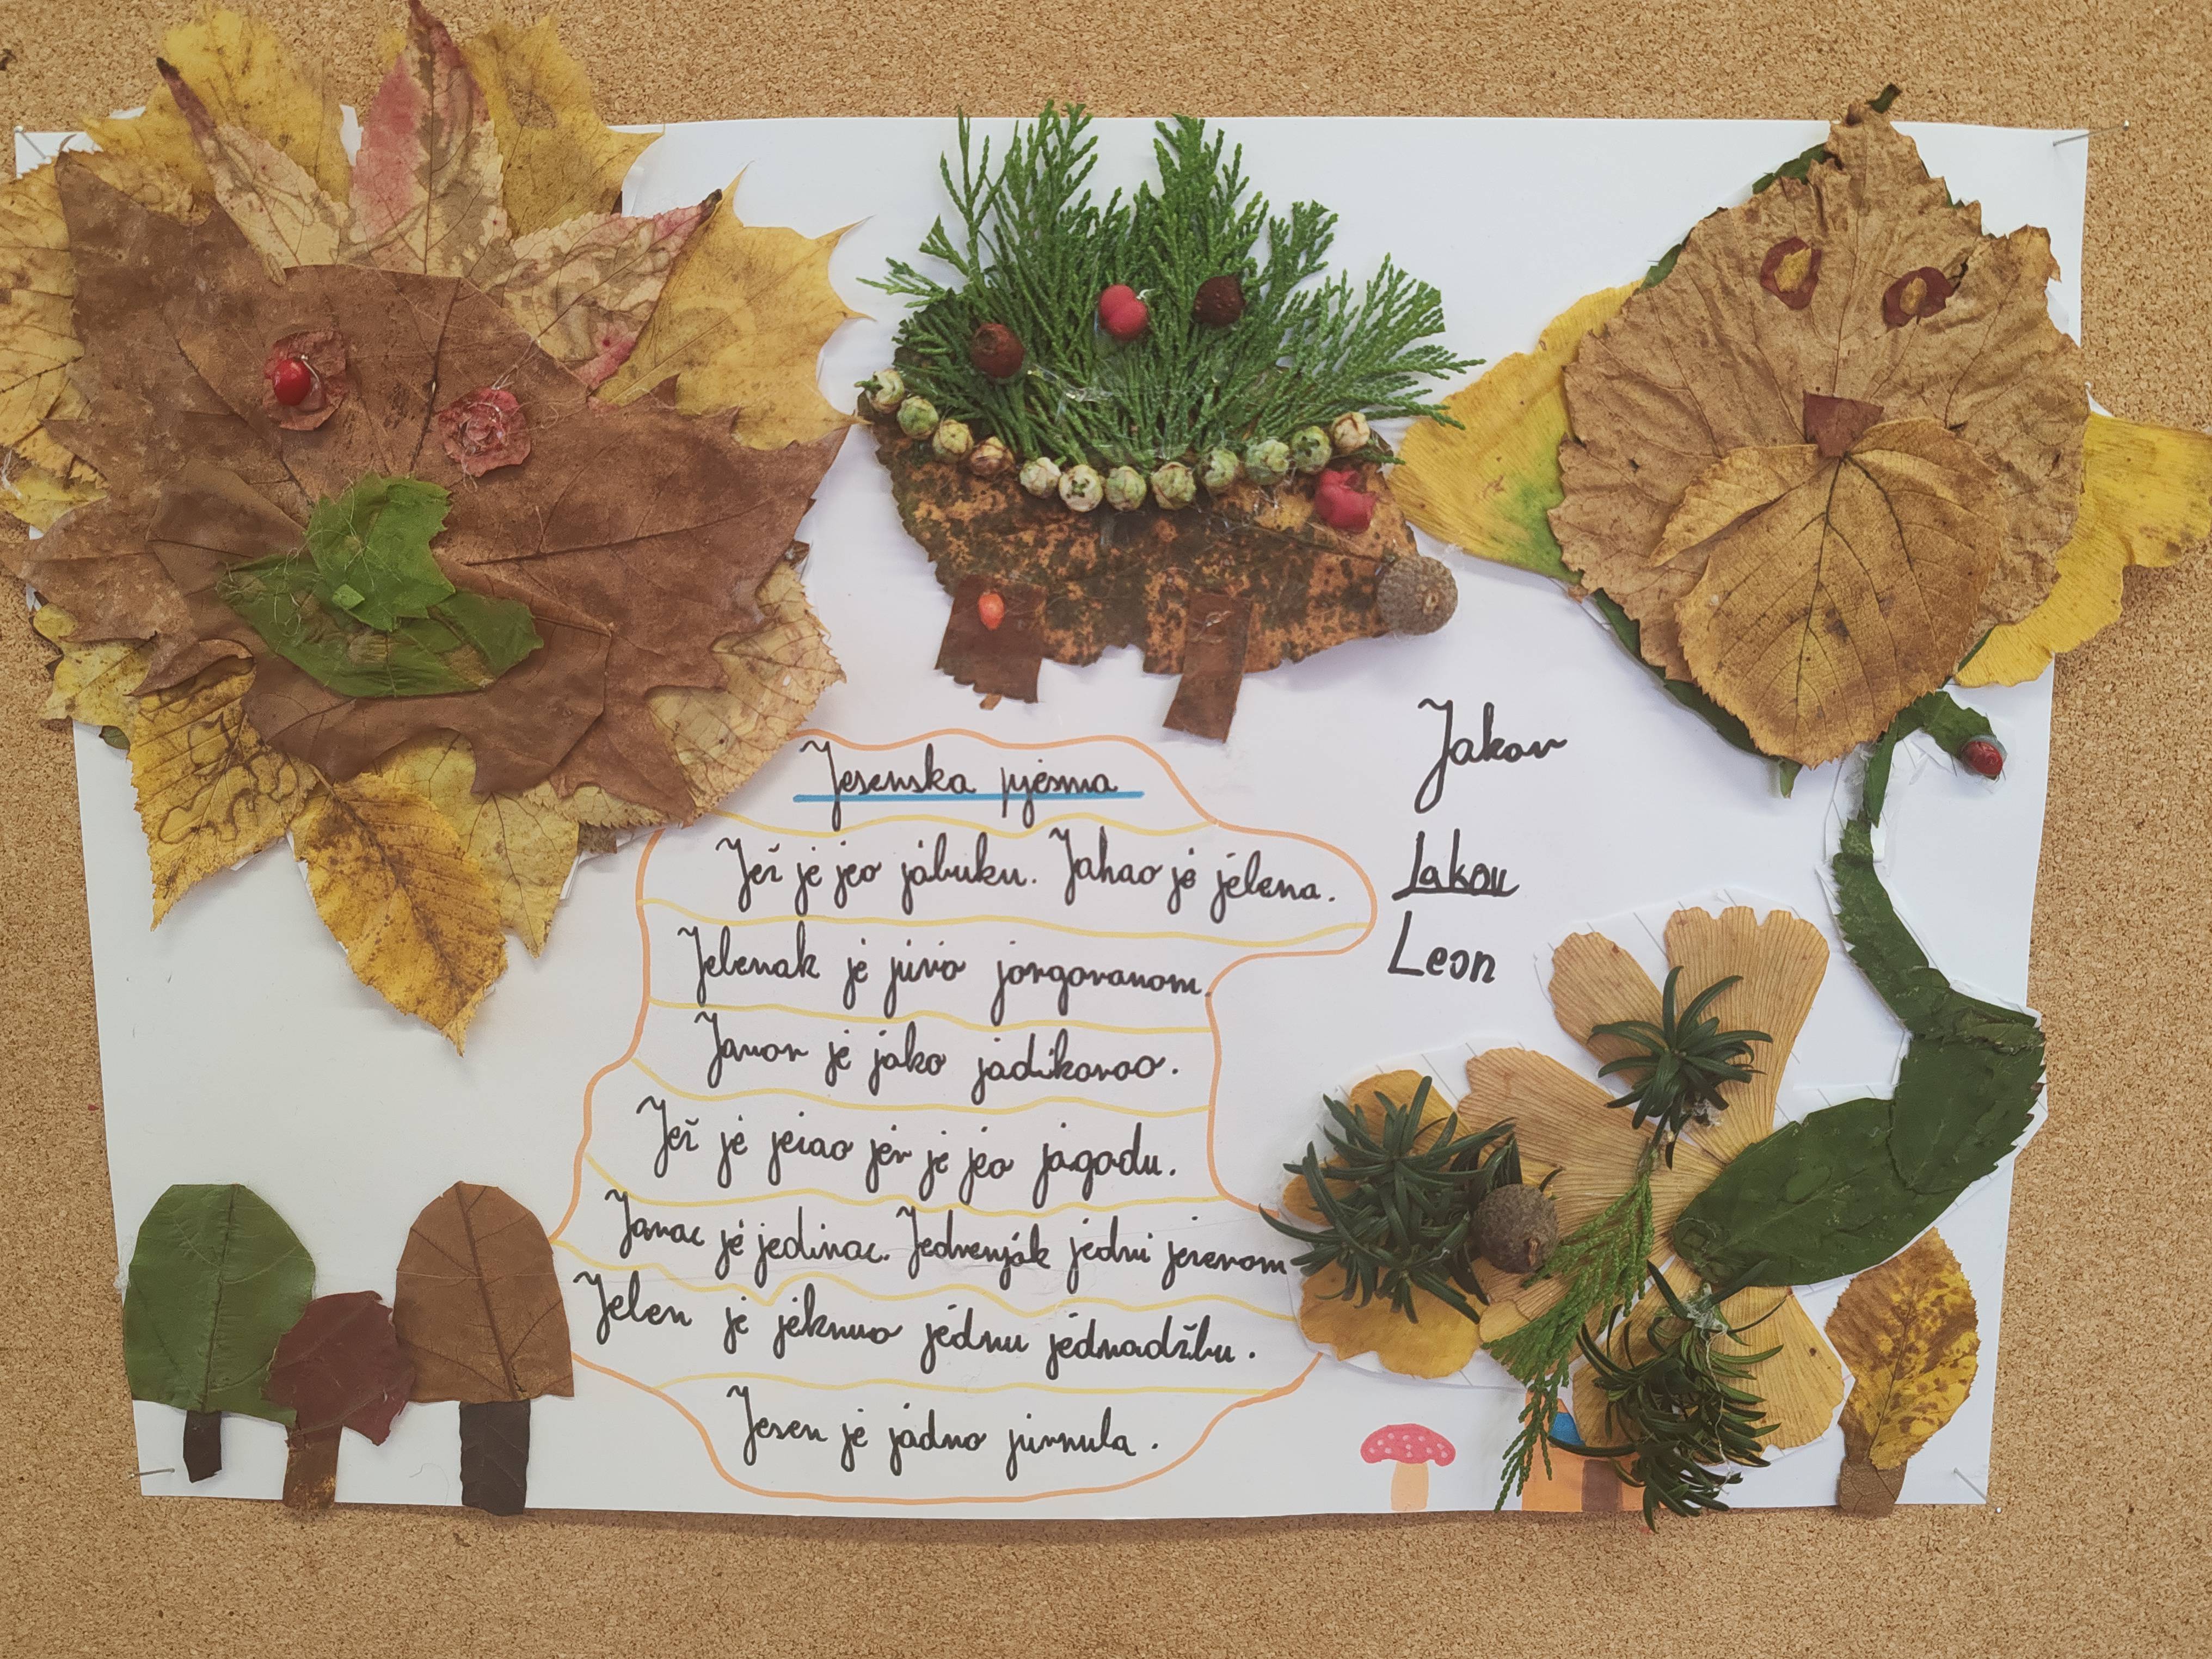 Jesenska pjesma
Jež je jeo jabuku. Jahao je jelena.
Jelenak je jurio jorgovanom.
Javor je jako jadikovao.
Jež je jecao jer je jeo jagodu.
Janac je jedinac. Jednenjak jedri jezerom
Jelen je jeknuo jednu jednadžbu.
Jesen je jadno jurnula.
Jakov
Lakou
Leon